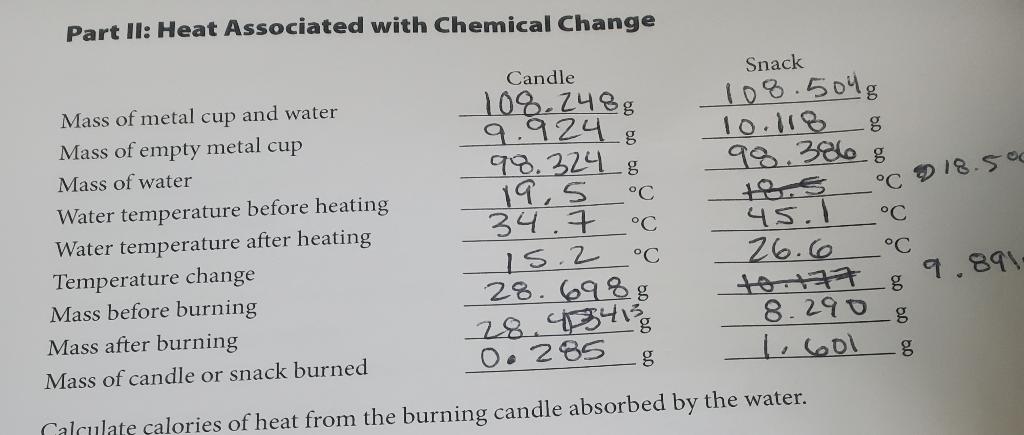 Part II: Heat Associated with Chemical Change
Candle Snack
Mass of metal cup and water 108.248 g 108.504 g
Mass of empty metal cup 9.924 g 10.118 g
Mass of water 98.324 g 98.386 g
Water temperature before heating 19.5 °C 18.5 °C 18.5°C
Water temperature after heating 34.7 °C 45.1 °C
Temperature change 15.2 °C 26.6 °C
Mass before burning 28.698 g 10.177 g 9.891
Mass after burning 28.413 g 8.290 g
Mass of candle or snack burned 0.285 g 1.601 g
Calculate calories of heat from the burning candle absorbed by the water.